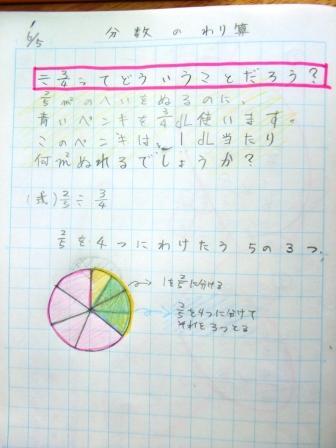 6/5
分数のわり算
÷3/4ってどういうことだろう?
2/5m²のへいをぬるのに、
青いペンキを3/4dL使います。
このペンキは、1dL当たり
何m²ぬれるでしょうか?
(式)2/5÷3/4
2/5を4つにわけたうちの3つ
1を2/5に分ける
2/5を4つに分けて
それを3つとる